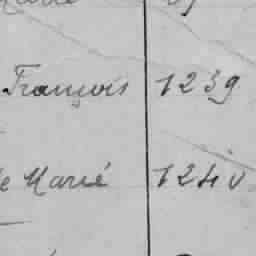 François 1239
Marie 1240